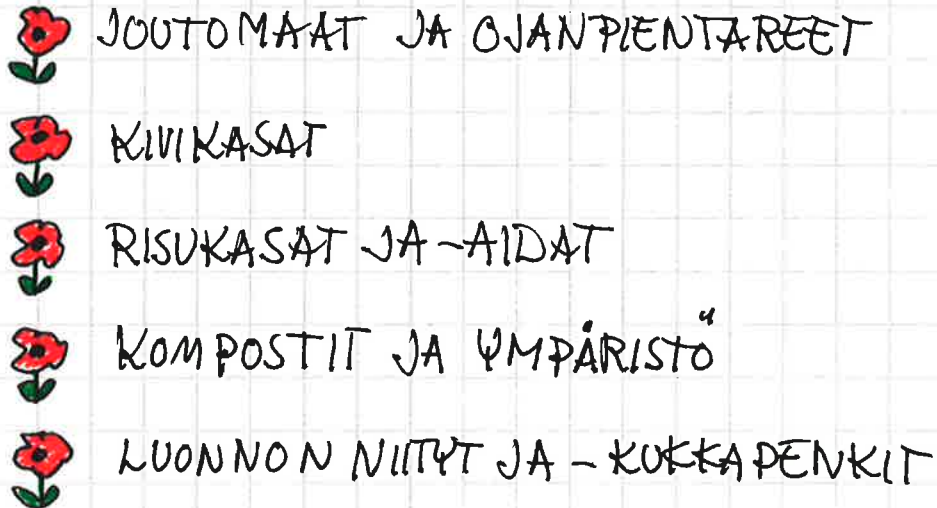 JOUTOMAAT JA OJANPIENTAREET
KIVIKASAT
RISUKASAT JA -AIDAT
KOMPOSTIT JA YMPÄRISTÖ
LUONNON NIITYT JA - KUKKAPENKIT